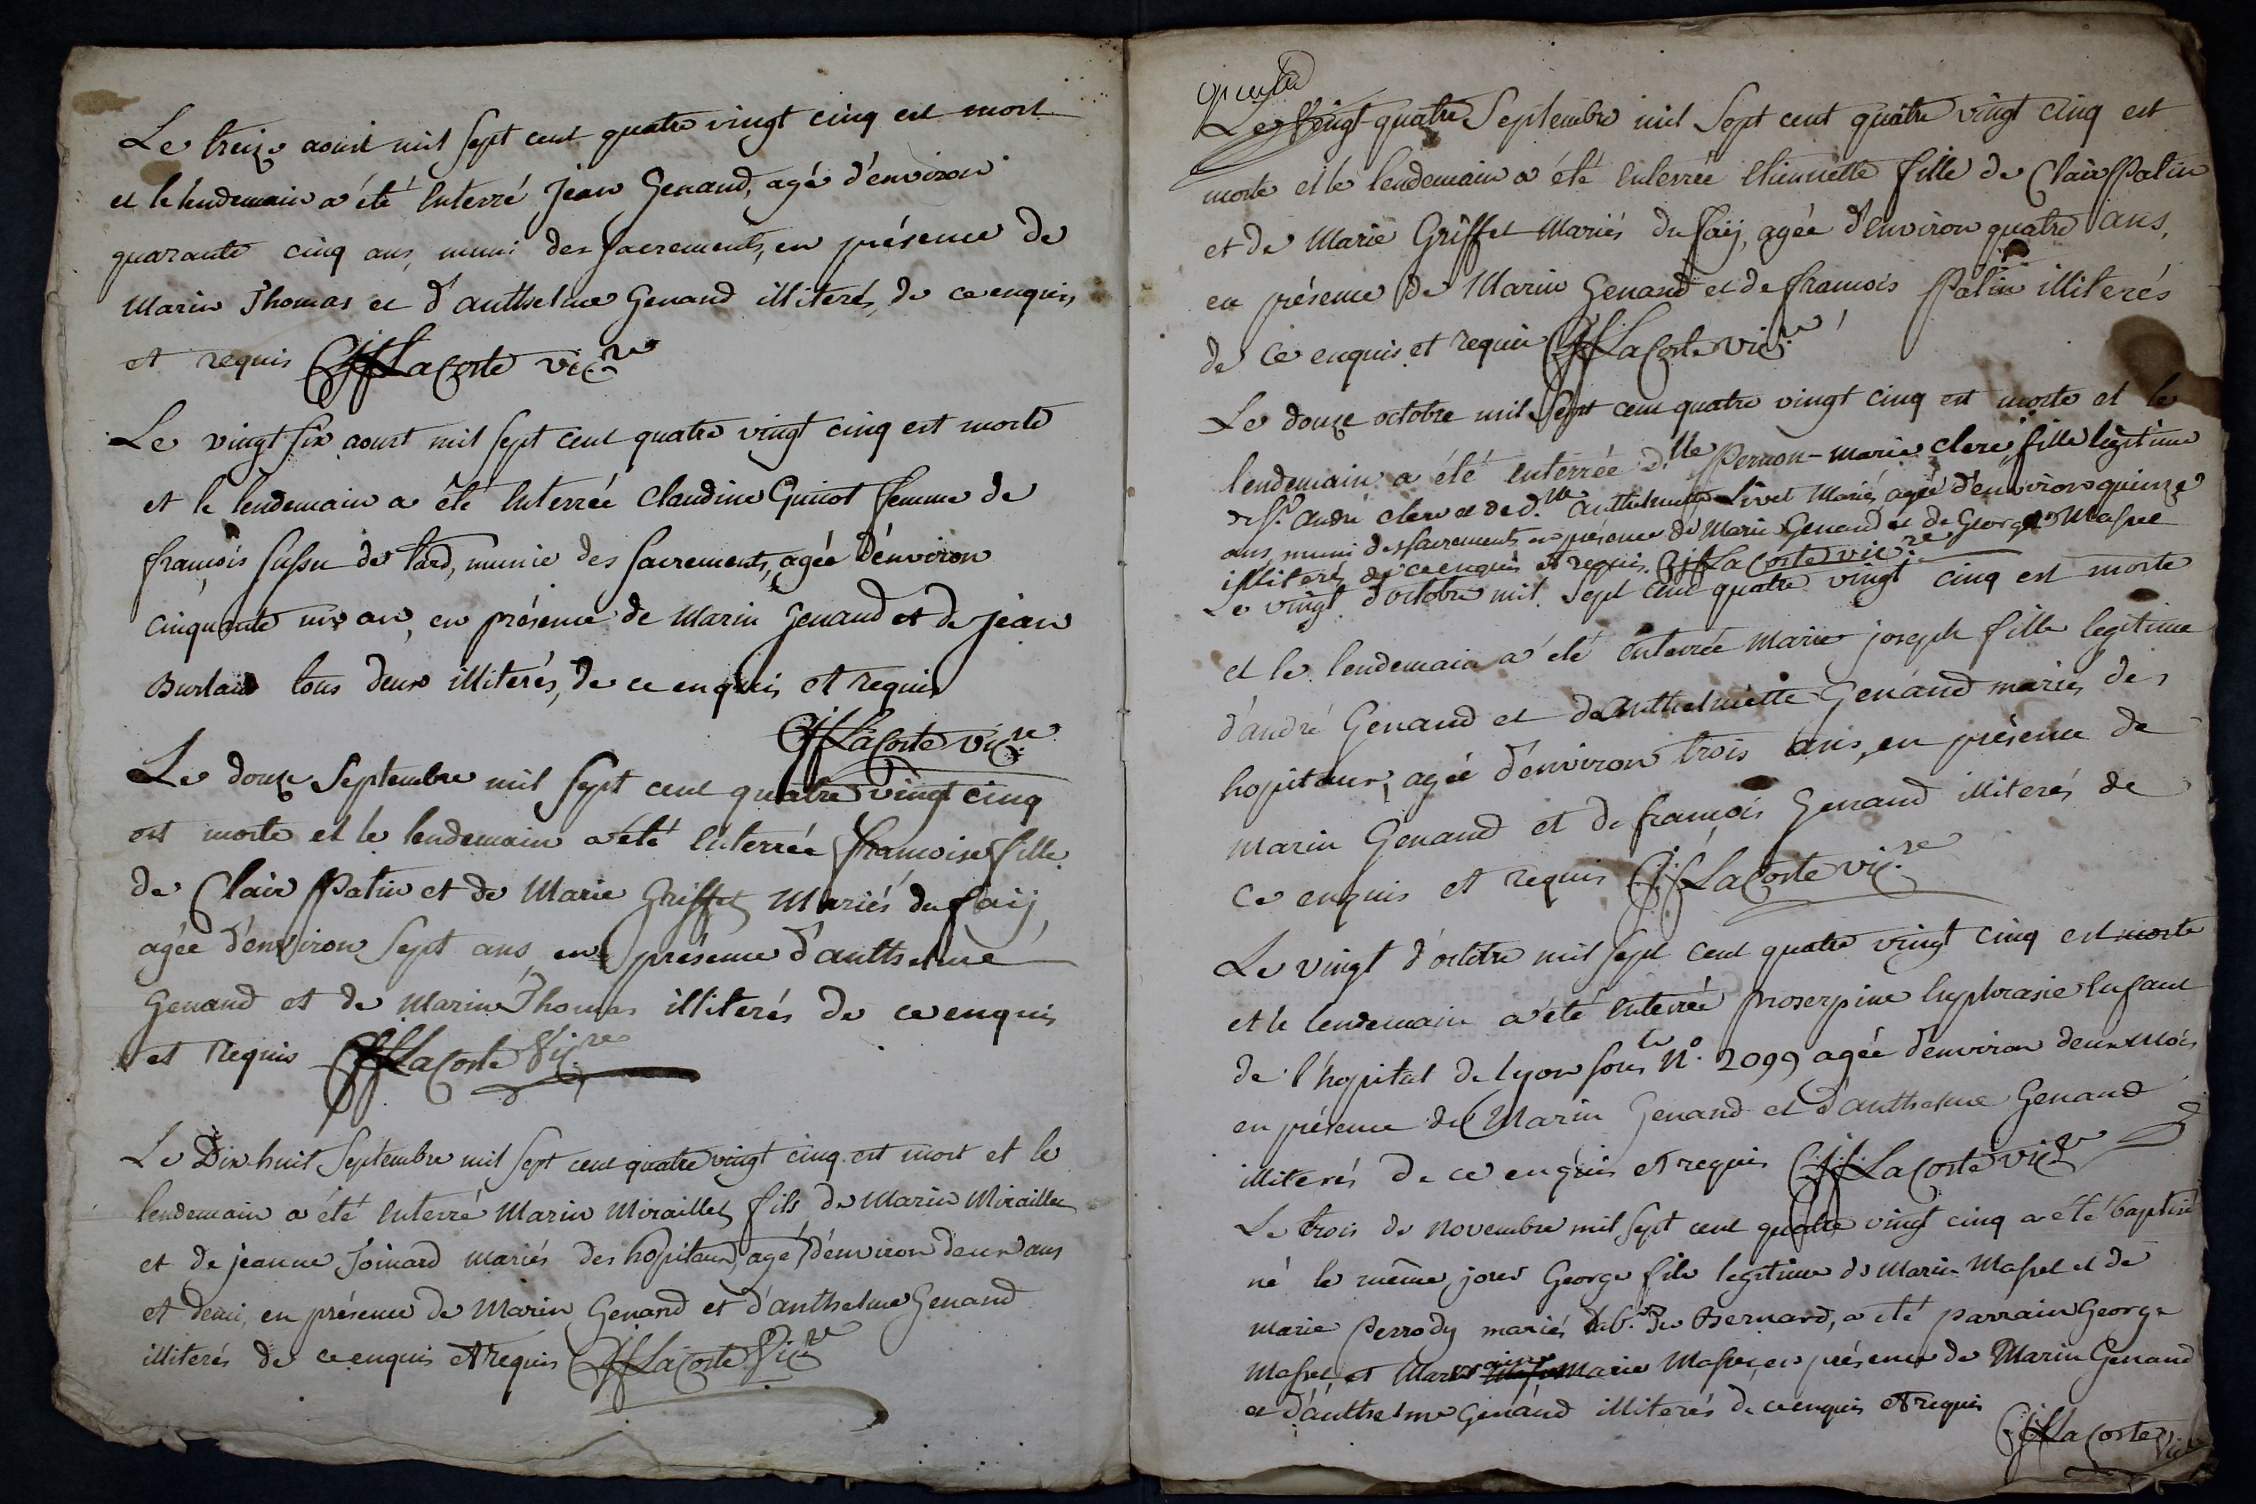 Le treize aoust mil sept cent quatre vingt cinq est mort
et le lendemain a été enterré jean Genand, agé d'environ
quarante cinq ans, muni des sacrements, en présence de
Marin Thomas et d'anthelme Genand illiterés, de ce enquis,
et requis LaCoste vic.re
Le vingt six aoust mil sept cent quatre vingt cinq est morte
et le lendemain a été enterrée Claudine Guicot femme de
françois sussu de lard, munie des sacrements, agée d'environ
cinquante un an, en présence de Marin Genand et de jean
Burlaud tous deux illiterés, de ce enquis et requis
LaCoste vic.re
Le douze Septembre mil sept cent quatre vingt cinq
est morte et le lendemain a été enterrée francoise fille
de Clair Patin et de Marie Griffet Mariés du faij,
agée d'environ sept ans en présence d'anthelme
Genand et de Marin Thomas illiterés de ce enquis
et requis LaCoste Vic.re
Le Dix huit Septembre mil sept cent quatre vingt cinq est mort et le
lendemain a été enterré Marin Miraillet fils de Marin Miraillet
et de jeanne Joinard mariés des hopitaux, agé d'environ deux ans
et demi, en présence de Marin Genand et d'anthelme Genand
illiterés de ce enquis et requis LaCoste Vic.re
Le Vingt-quatre Septembre mil sept cent quatre vingt cinq est
morte et le lendemain a été enterrée Etiennette fille de Clair Patin
et de Marie Griffet Mariés du faij, agée d'environ quatre ans,
en présence de Marin Genand et de francois Patin illiterés
de ce enquis et requis LaCoste vic.re
Le douze octobre mil sept cent quatre vingt cinq est morte et le
lendemain a été enterrée d.lle Pernon-marie clerc, fille légitime
de s.r andré clerc et de d.lle anthelmette Livet Mariés, agée d'environ quinze
ans, muni des sacrements en présence de Marin Genand et de George Massel
illiterés de ce enquis et requis. LaCoste vic.re
Le vingt d'octobre mil sept cent quatre vingt cinq est morte
et le lendemain a été enterrée Marie joseph fille legitime
d'andré Genand et de anthelmette Genand mariés des
hopitaux, agée d'environ trois ans, en présence de
marin Genand et de françois Genand illiterés de
ce enquis et requis LaCoste vic.re
Le vingt d'octobre mil sept cent quatre vingt cinq est morte
et le lendemain a été enterrée proserpine Euphrasie enfant
de l'hopital de lyon sous le N.o 2099 agée d'environ deux mois
en présence de Marin Genand et d'anthelme Genand
illiterés de ce enquis et requis LaCoste vic.re
Le trois de novembre mil sept cent quatre vingt cinq a été baptisé
né le même jour George fils legitime de Marin Massel et de
marie Perrody mariés du Bernard, a été parrain George
Massel et Marraine Marie Massel, en présence de Marin Genand
et d'anthelme Genand illiterés de ce enquis et requis
LaCoste Vic.re